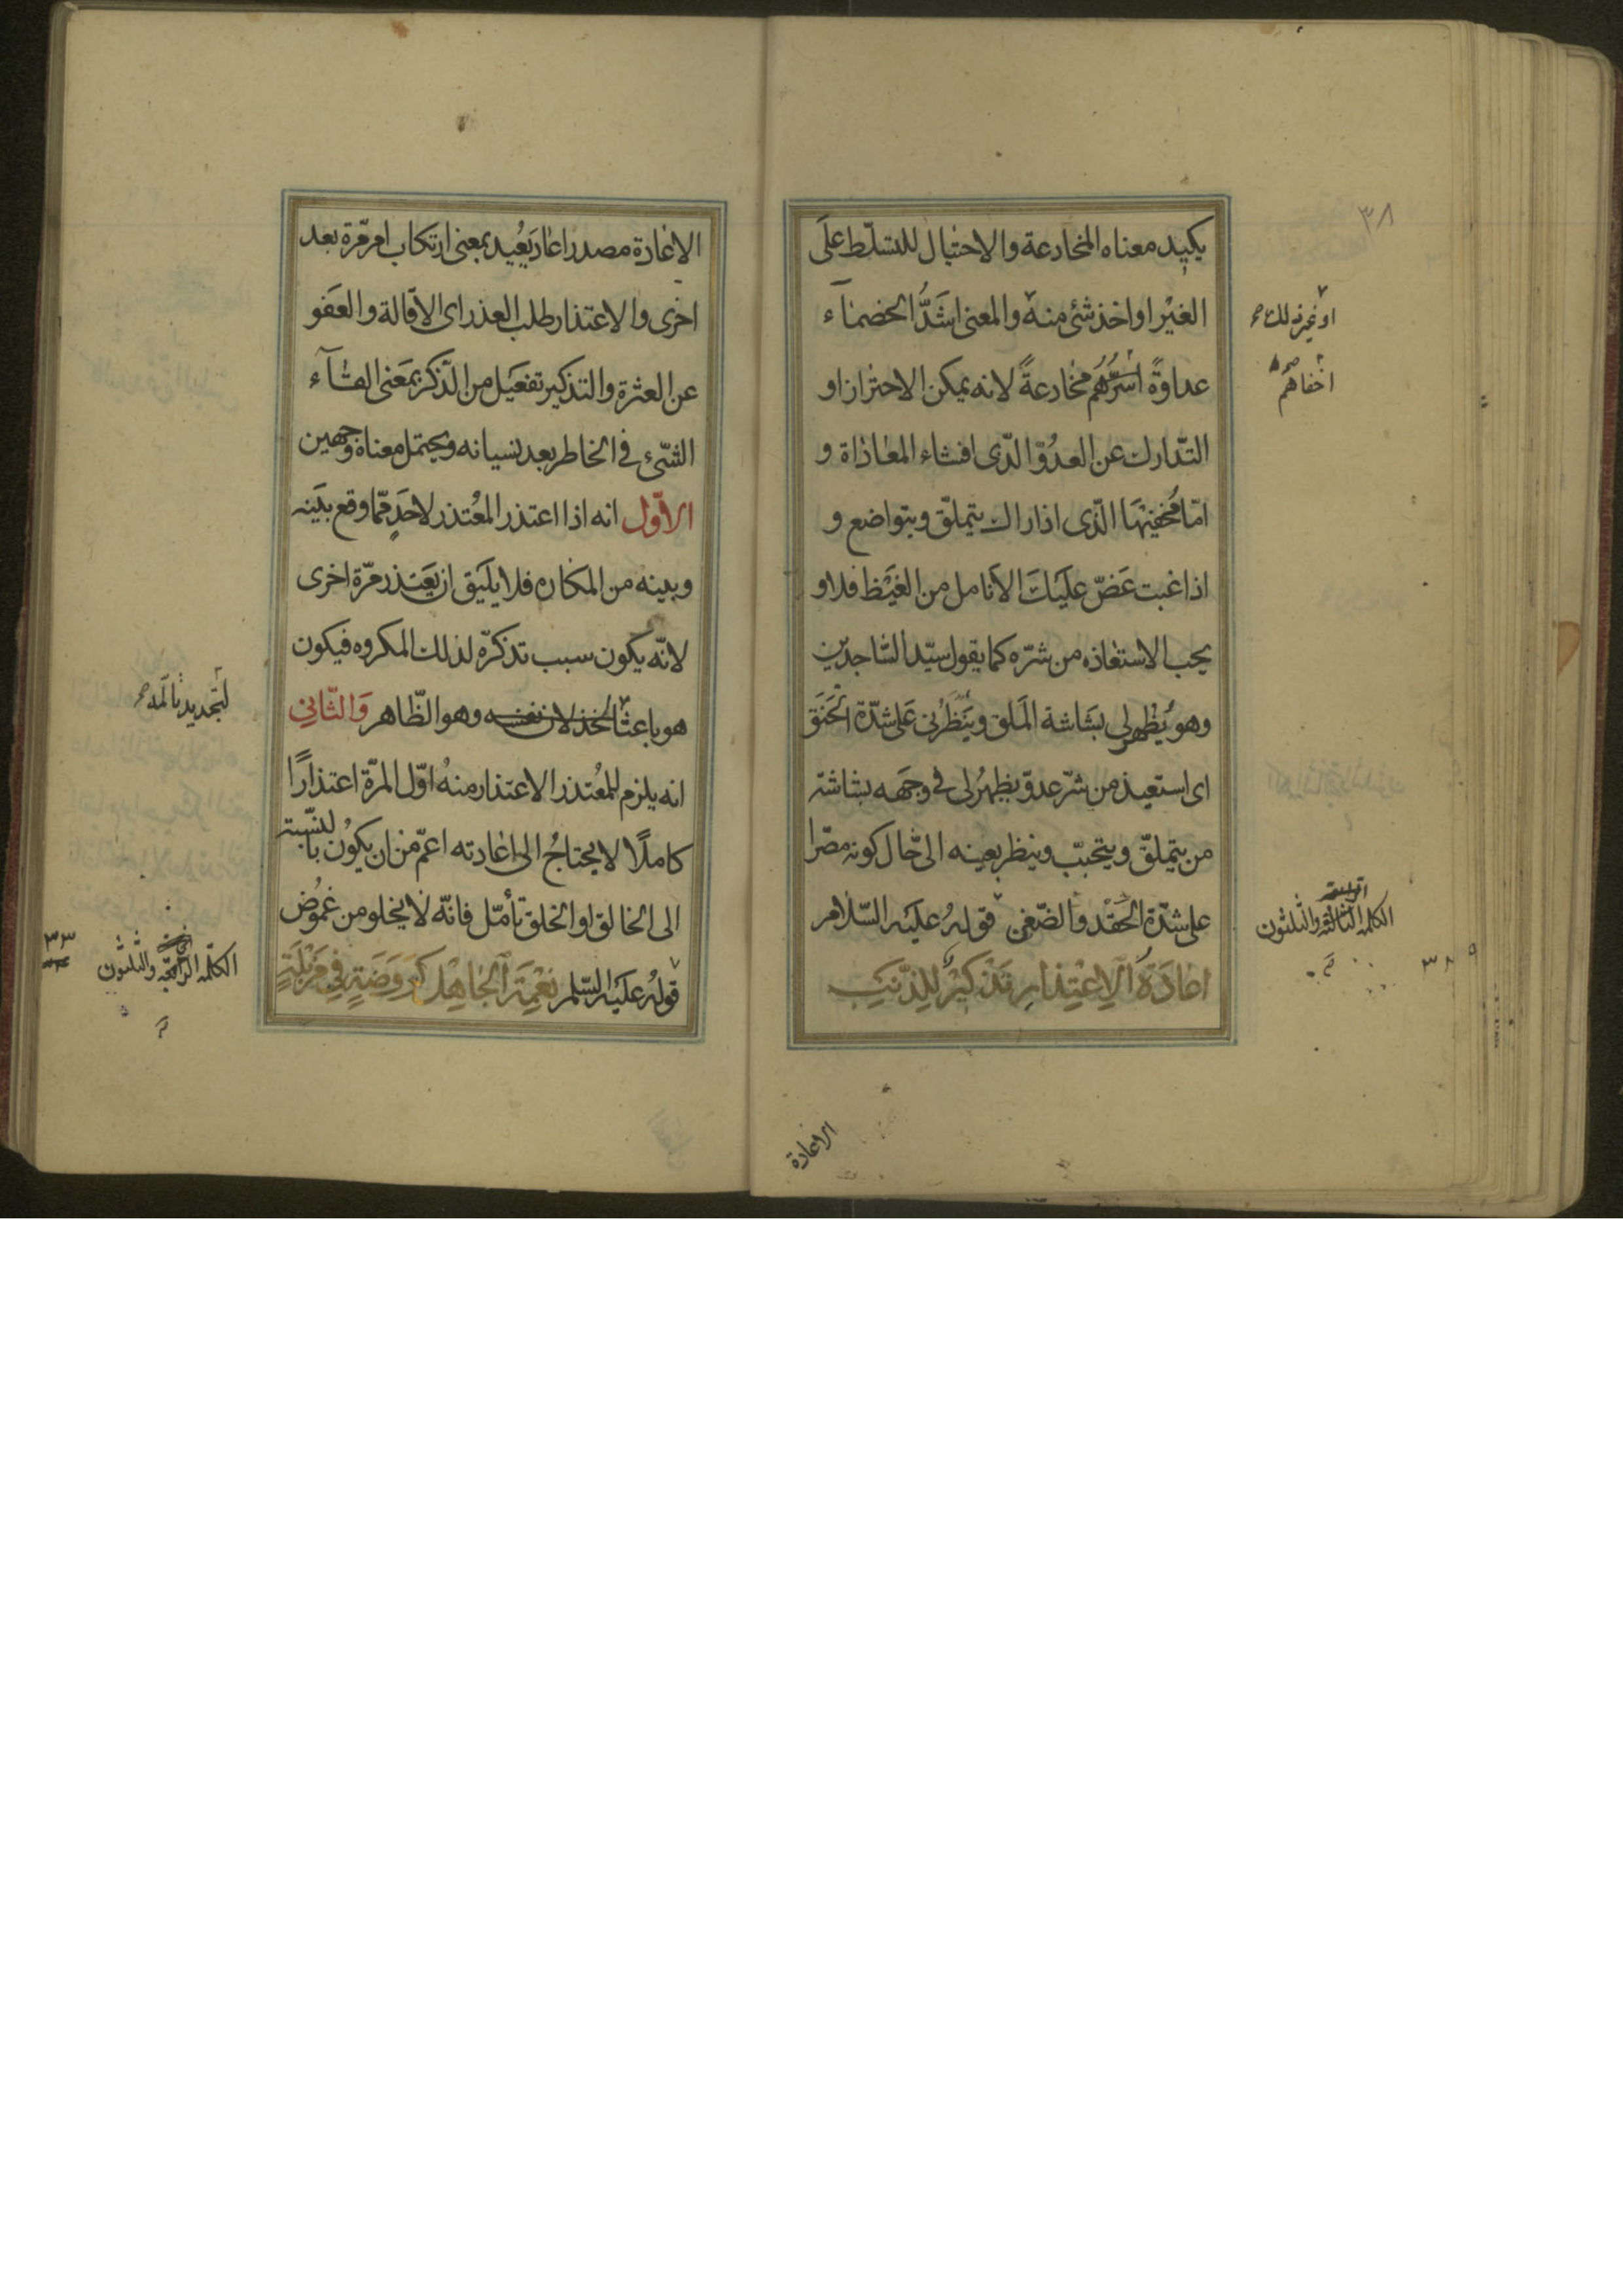 ٣٨
يكيد معناه المخادعة والاحتيال للتسلّط على
الغير او اخذ شئ منه والمعنى اشدُّ الخصماۤء
او غير ذلك صح
عداوةً اسرّهم مخادعةً لانه يمكن الاحتراز او
اخفاهم صح
التّدارك عن العدوّ الّذى افشاء المعاداة و
امّا مخفيها الّذى اذا راك يتملّق ويتواضع و
اذا غبت عَضّ عليك الانامل من الغيظ فلا و
يجب الاستعاذه من شرّه كما يقول سيّد السّاجدين
وهو يُظهر لى بشاشة المَلق وينظرنى على شدّة الحَنَق
اى استعيذ من شرّ عدوّ يظهر لى فى وجهه بشاشة
من يتملّق ويتحبّب وينظر بعينه الى حال كونه مصّرا
على شدّة الحقد والضّغن قوله عليه السّلام
الكلمة الثالثه والثلثون
اعادَةُ الاِعْتِذارِ تَذْكيرٌ لِلذَّنبِ
الاعادة
الاعادة مصدر اعاد يُعيد بمعنى ارتكاب امر مرّة بعد
اخرى والاعتذار طلب العذر اى الاقالة والعفو
عن العثرة والتذكير تفعيل من الذّكر بمَعنى القاۤء
الشّئ فى الخاطر بعد نسيانه ويحتمل معناه وجهين
الاوّل انه اذا اعتذر المُعتذر لاحَدٍ ممّا وقع بينه
وبينه من المكاره فلا يليق ان يَعتذر مرّة اخرى
لانّه يكون سبب تذكرّه لذلك المكروه فيكون
هو باعثا لخذلان نفسه وهو الظّاهر وَالثّانِى
لتجديد تالمه صح
انه يلزم للمُعتذر الاعتذار منهُ اوّل المرّة اعتذارًا
كاملًا لا يحتاجُ الى اعادته اعمّ من ان يكون بالنّسبة
الى الخالق او الخلق تأمّل فانّه لا يخلو من غموُض
الكلمه الرابعه والثلثون
٣٣
قوله عليه السّلم نِعْمَةُ الجاهِلِ كَرَوضَةٍ فِى مَزْبَلَةٍ